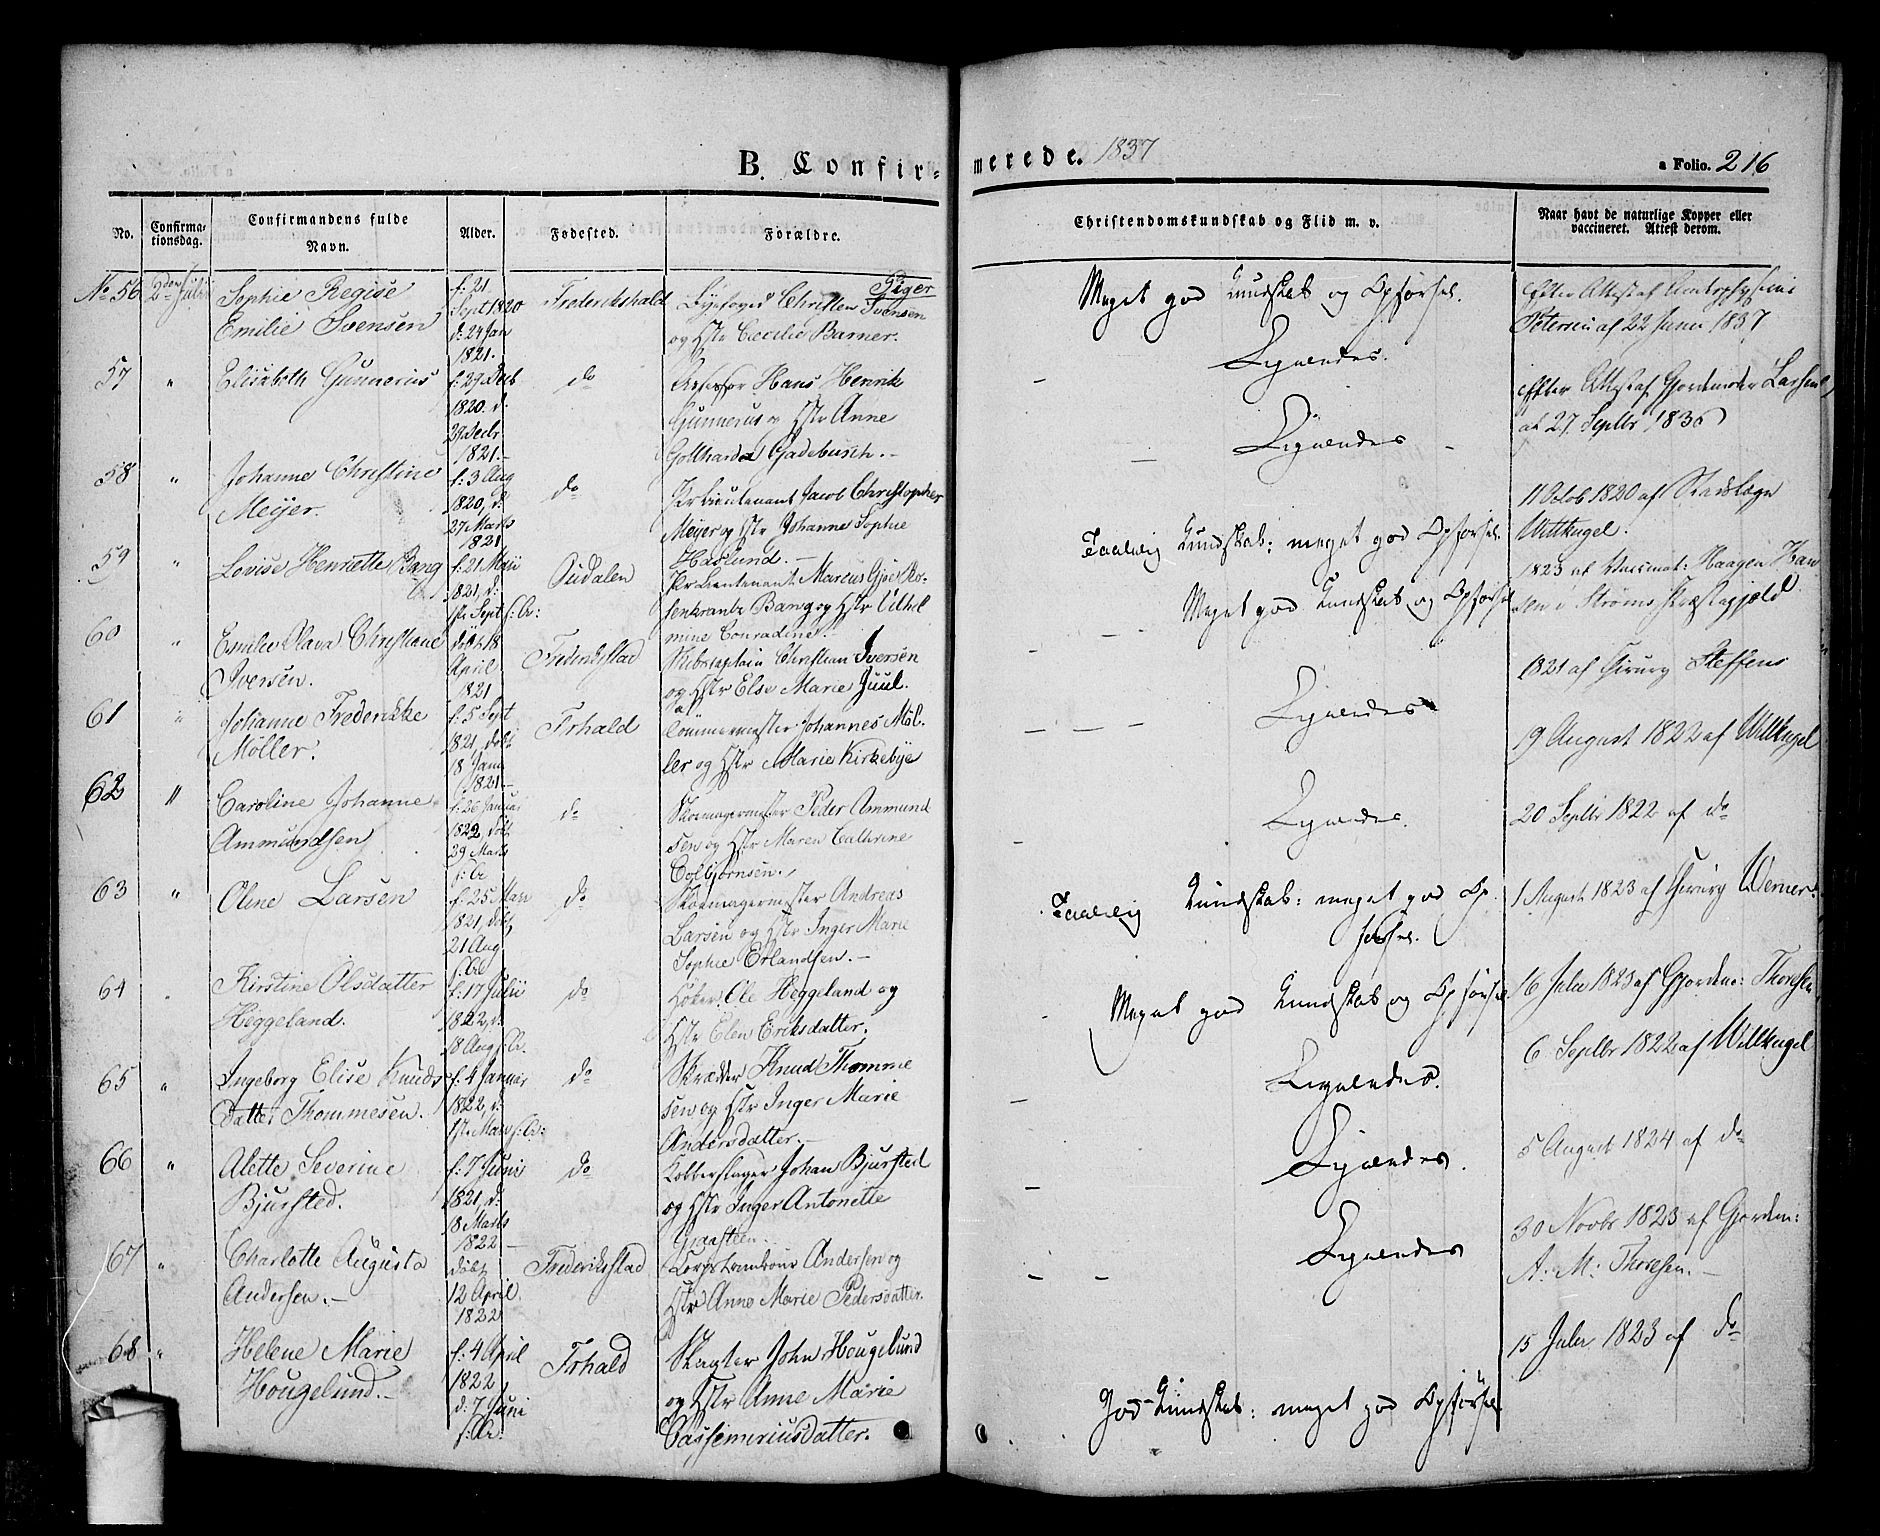 B. Confir-
merede. 1837
a Folio. 216
No. Confirma-
tionsdag. Confirmandens fulde
Navn. Alder. Fødested. Forældre.
Christendomskundskab og Flid m. v.
Naar havt de naturlige Kopper eller
vaccineret. Attest derom.
Piger
No 56 2den Julii Sophie Regise
Emilie Svensen
f: 21
Sept 1820
d: 24 Jan
1821.
Frederikshald
Byefoged Christen Svensen
og Hstr Cecilie Barner.
Meget god Kundskab og Opførsel.
Efter Attest af
Petersen af 22 Juni 1837
57 " Elisabeth Gunnerus
f: 29 Decb
1820. d.
29 Decbr
1821.-
do
Hans Henrik
Gunnerus og Hstr Anne
Gottharda Gadebusch.-
Ligeledes.
Efter Attest af Gjordemoder Larsen
af 27. Septbr 1836
58 " Johanne Christine
Meijer.
f: 3 Aug
1820, d.
27 Marts
1821
do
Pr Lieutenant Jacob Christopher
Meijer og Hstr Johanne Sophie
Haslund.-
Ligeledes
11 Octob 1820 af
Wittkugel.
59 " Lovise Henriette Bang
f: 21 Maii
1821, d:
Sept. s: Ar:
Oudalen
Pr Lieutenant Marcus Gjøe Ro-
senkrantz Bang og Hstr Vilhel
mine Conradine.
Taalelig Kundskab: meget god Opførsel.
1823 af Vaccinat: Haagen Han
sen i Strøms
60 " Emilie Olava Christiane
Iversen.
døbt 18
April
1821
Frederikstad
Skibscaptain Christian Iversen
og Hstr Else Marie Juul.
Meget god Kundskab og Opførsel
1821 af Chirurg Steffens
61 " Johanne Frederikke
Møller.
f: 5 Sept
1821, døbt
18 Janu
1821.-
Frhald
Tømmermester Johannes Møl-
ler og Hstr Marie Kirkebye
Ligeledes
19 August 1822 af Wittkugel
62 " Caroline Johanne
Ammundsen
f: 26 Januar
1822, døbt
29 Marts
s: Ar
do
Skoemagermester Peder Ammund
sen og Hstr Maren Cathrine
Colbjørnsen.
Ligeledes.
20 Septbr 1822 af do
63 " Oline Larsen
f: 25 Mai
1821, døbt
21 Aug
s: Ar
do
Skoemagermester Andreas
Larsen og Hstr Inger Marie
Sophie Erlandsen.-
Taalelig Kundskab: meget god Op-
førsel.
1 August 1823 af Chirurg Werner
64 " Kirstine Olsdatter
Heggeland.
f: 17 Julii
1822, d.
18 Aug s: Ar.
do
Høker Ole Heggeland og
Hstr Elen Eriksdatter.
Meget god Kundskab og Opførsel
16 Julii 1823 af Gjordem: Thoresen
65 " Ingeborg Elise Knuds
datter Thommesen.
f: 4 Januar
1822, d.
17 Mars s: Ar:
do
Skrædder Knud Thomme
sen og Hstr Inger Marie
Andersdatter.-
Ligeledes.
6 Septbr 1822 af Wittkugel
66 " Alette Severine
Bjursted.
f: 7 Juni
1821, d:
18 Marts
1822
do
Kobberslager Johan Bjursted
og Hstr Inger Antonette
Graasteen.
Ligeledes.
5 August 1824 af do
67 " Charlotte Augusta
Andersen.-
døbt
12 April.
1822
Frederikstad
Corpstambour Andersen og
Hstr Anne Marie Pedersdatter.
Ligeledes
30 Novbr 1823 af Gjordem:
A: M: Thoresen.-
68 " Helene Marie
Hougelund.-
f: 4 April
1822,
d: 7 Juni
s: Ar.
Frhald
Slagter John Hougelund
og Hstr Anne Marie
Cassemiriusdatter.
God Kundskab: meget god Opførsel
15 Julii 1823 af do